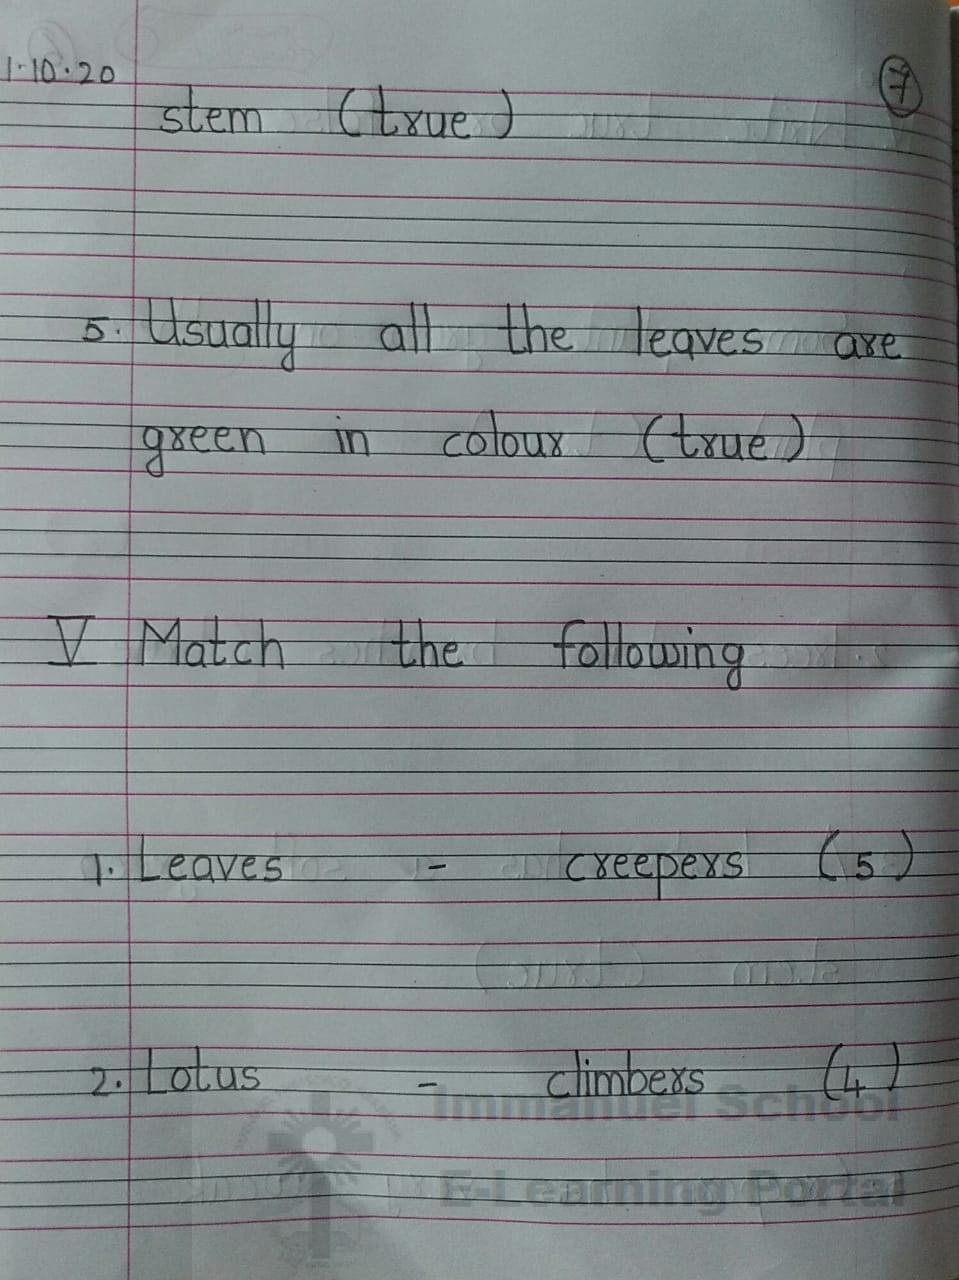 1.10.20
7
stem (true)
5. Usually all the leaves are
green in colour (true)
V Match the following
1. Leaves - creepers (5)
2. Lotus - climbers (4)
Immanuel School
E-Learning Portal